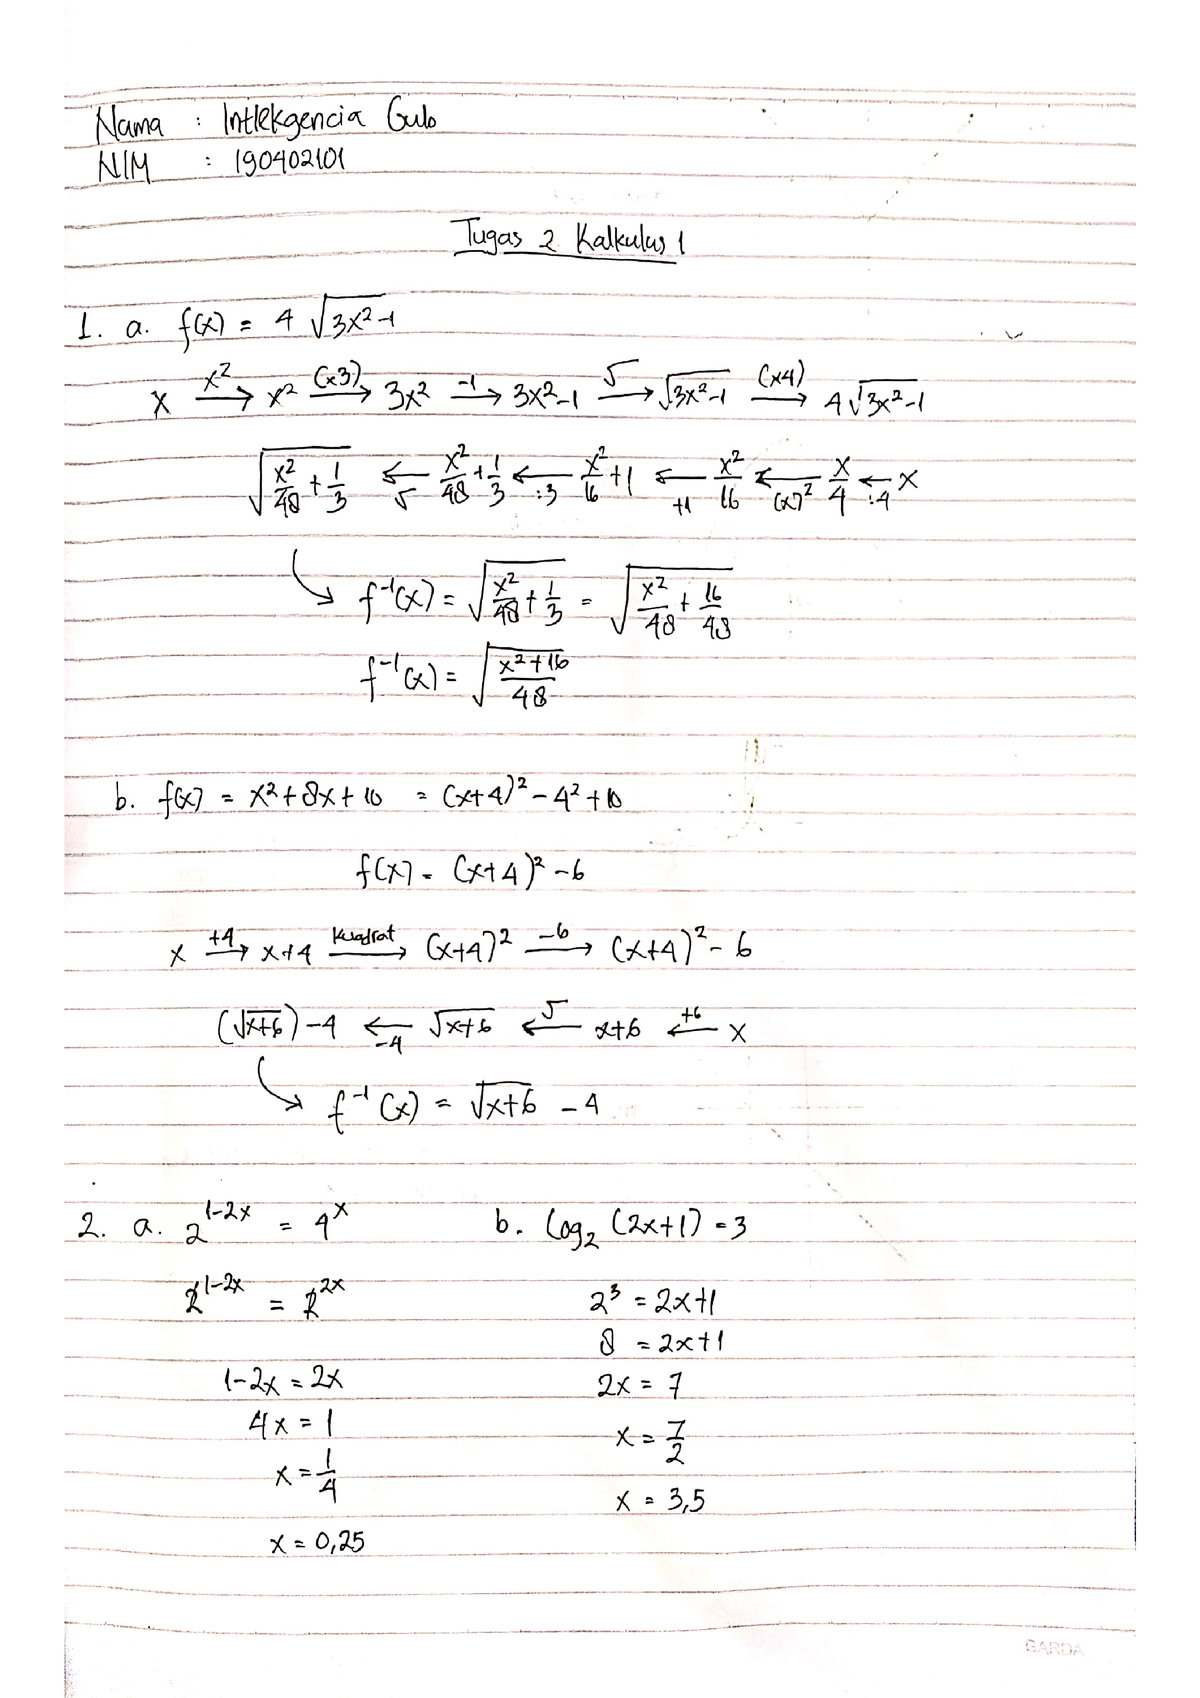 Nama : Intlekgencia Gulo
NIM : 190402101
Tugas 2 Kalkulus 1
1. a. f(x) = 4 √(3x²-1)
x —x²→ x² —(x3)→ 3x² —-1→ 3x²-1 —√→ √(3x²-1) —(x4)→ 4√(3x²-1)
√(x²/48 + 1/3) ←√ x²/48 + 1/3 ←:3 x²/16 + 1 ←+1 x²/16 ←(x)² x/4 ←:4 x
↳ f⁻¹(x) = √(x²/48 + 1/3) = √(x²/48 + 16/48)
f⁻¹(x) = √((x²+16)/48)
b. f(x) = x² + 8x + 10 = (x+4)² - 4² + 10
f(x) = (x+4)² - 6
x —+4→ x+4 —kuadrat→ (x+4)² —-6→ (x+4)² - 6
(√(x+6)) - 4 ←-4 √(x+6) ←√ x+6 ←+6 x
↳ f⁻¹(x) = √(x+6) - 4
2. a. 2^(1-2x) = 4^x
2^(1-2x) = 2^(2x)
1-2x = 2x
4x = 1
x = 1/4
x = 0,25
b. log₂ (2x+1) = 3
2³ = 2x+1
8 = 2x+1
2x = 7
x = 7/2
x = 3,5
GARDA